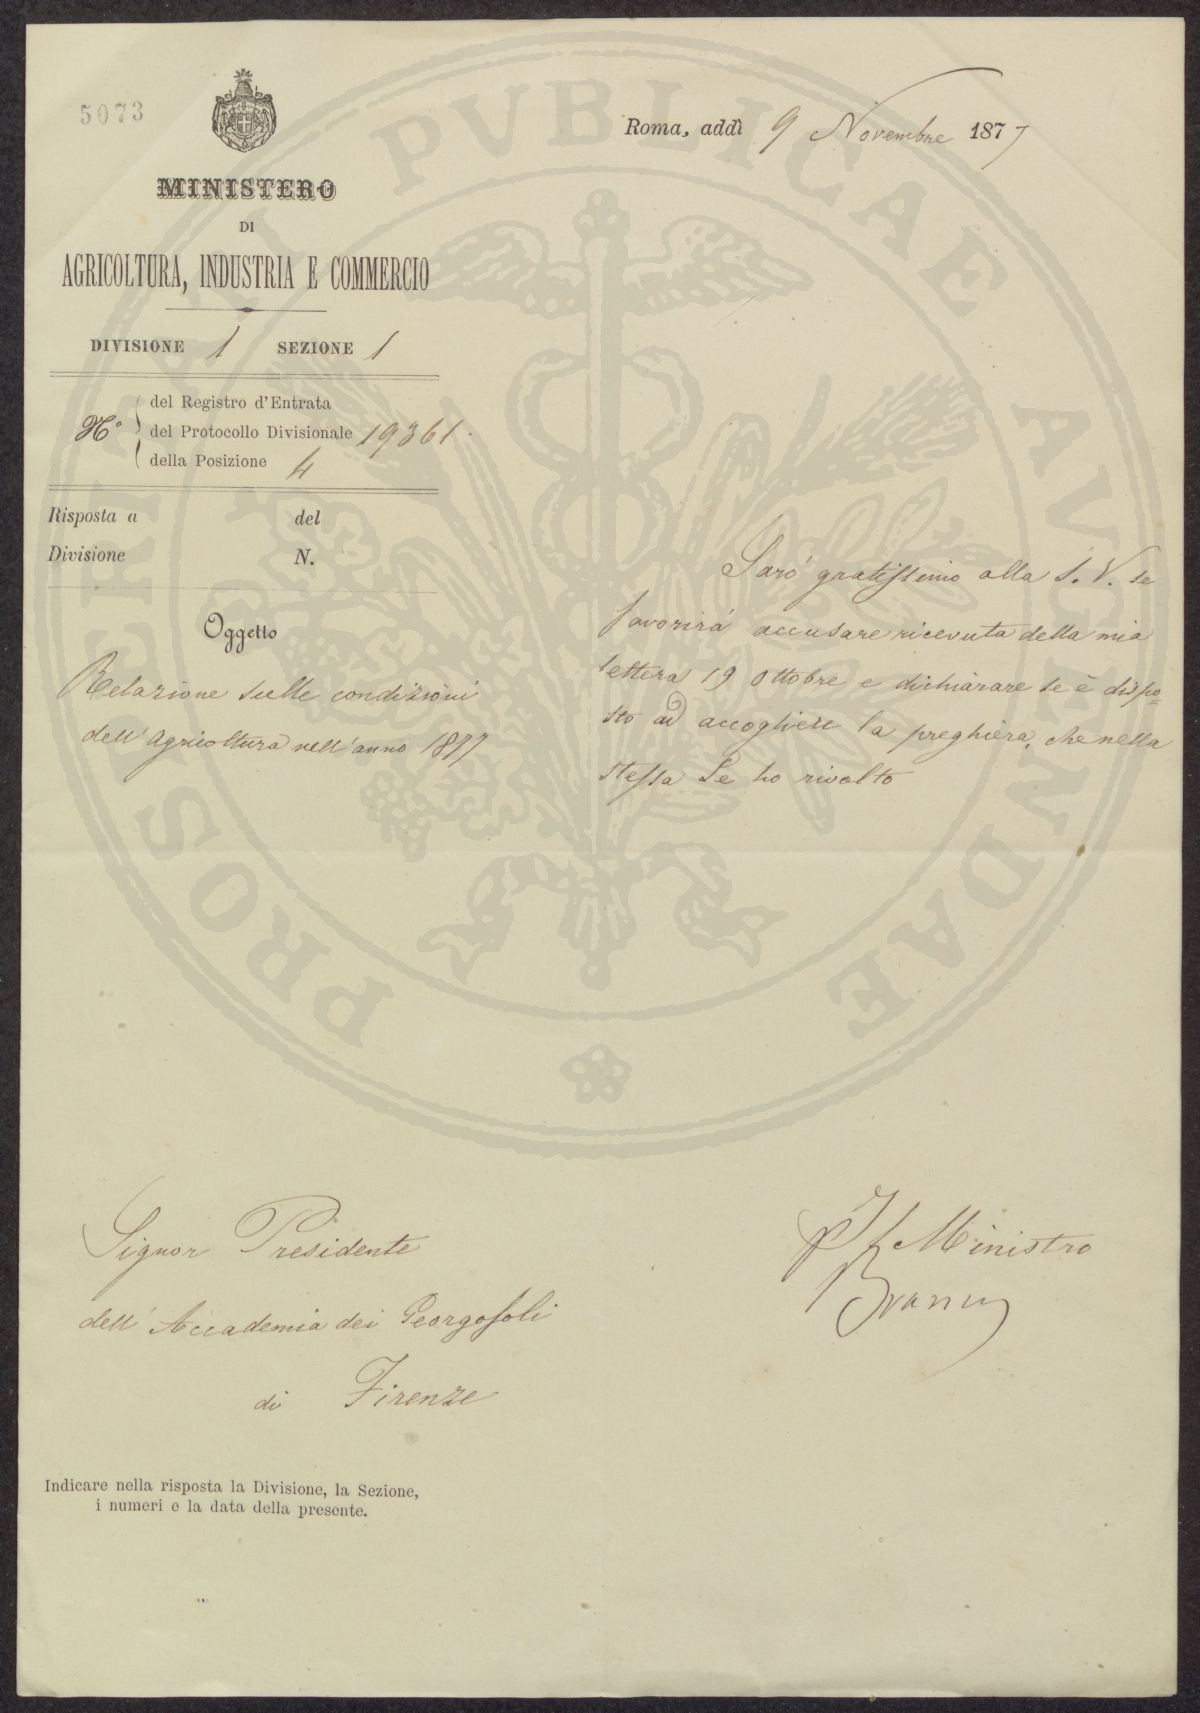 5073
Roma, addì 9 Novembre 1877
MINISTERO
DI
AGRICOLTURA, INDUSTRIA E COMMERCIO
DIVISIONE 1 SEZIONE 1
N.°
del Registro d'Entrata
del Protocollo Divisionale 19361.
della Posizione 4
Risposta a del
Divisione N.
Oggetto
Relazione sulle condizioni
dell'Agricoltura nell'anno 1877
Sarò gratissimo alla S. V. se
favorirà accusare ricevuta della mia
lettera 19 Ottobre e dichiarare se è dispo=
sto ad accogliere la preghiera, che nella
stessa Le ho rivolto
Signor Presidente
dell'Accademia dei Georgofoli
di Firenze
Il Ministro
Indicare nella risposta la Divisione, la Sezione,
i numeri e la data della presente.
PROSPERITATI PVBLICAE AVGENDAE